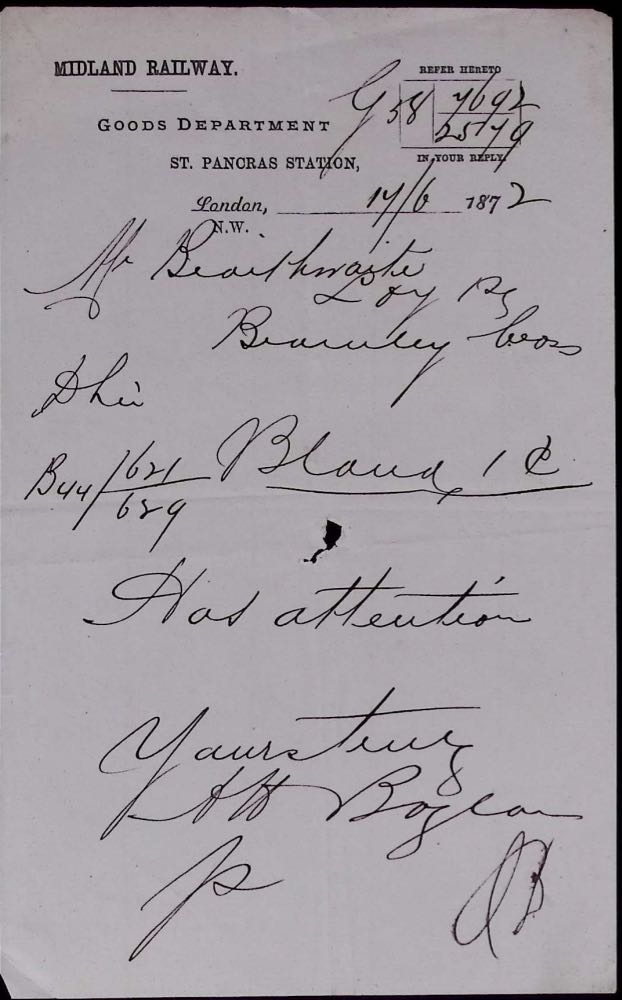 MIDLAND RAILWAY.
GOODS DEPARTMENT
ST. PANCRAS STATION,
REFER HERETO
G 58 7692
2579
IN YOUR REPLY.
London, 14/6 1872
N.W.
Mr Braithwaite
L & Y Ry
Bramley
D Sir
B44/1621
629
Bland 1 C
Has attention
Yours truly